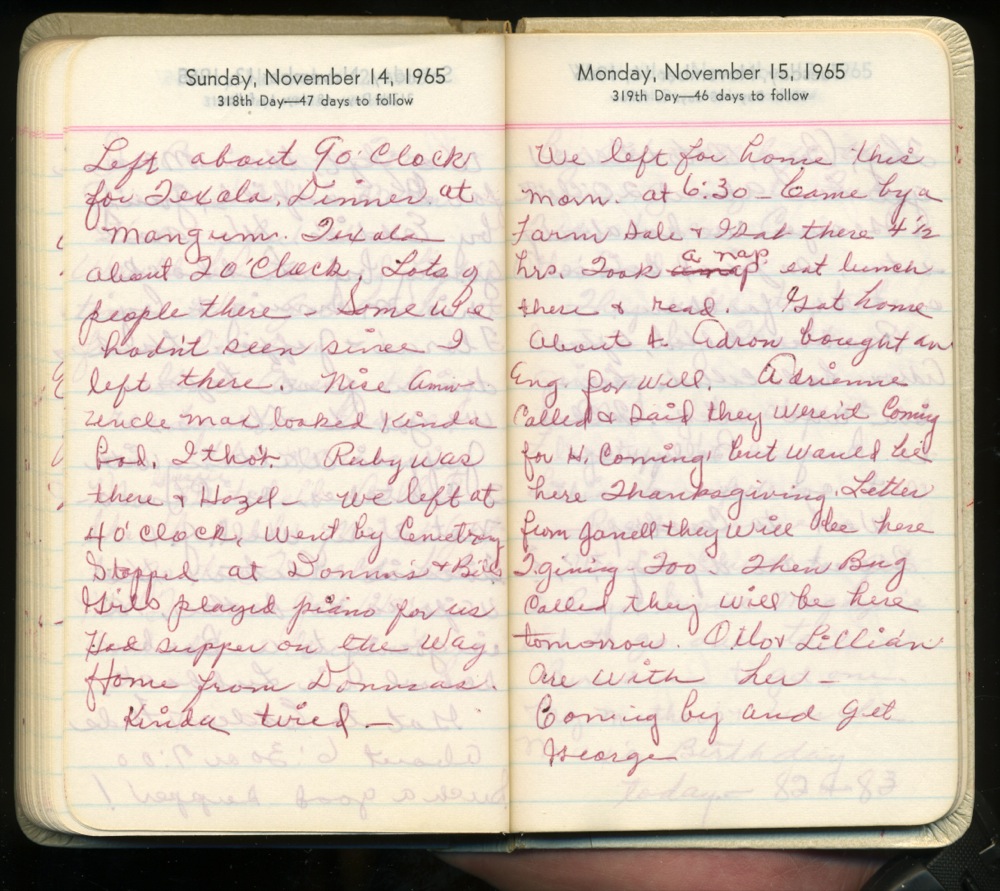 Sunday, November 14, 1965
318th Day—47 days to follow
Left about 9 o'Clock
for Texola. Dinner at
Mangum. Texola
about 2 o'Clock. Lots of
people there - Some We
hadn't seen since I
left there. Nice
Uncle Max looked Kinda
Bad, I tho't. Ruby was
there & Hazel - We left at
4 o'clock, Went by Cemetery
Stopped at Donna's & Bill's
Girls played piano for us
Had supper on the Way
Home from Donna's.
Kinda tired -
Monday, November 15, 1965
319th Day—46 days to follow
We left for home this
morn. at 6:30 - Came by a
Farm Sale & I Sat there 4 1/2
hrs. Took a nap eat lunch
there & read. Got home
About 4. Adron bought an
Eng. for Will. Adrienne
Called & Said they weren't Coming
for H. Coming, but Would be
here Thanksgiving. Letter
from Janell they Will be here
T.giving - Too. Then Bug
Called they will be here
tomorrow. Otto & Lillian
Are With her -
Coming by and get
George Birthday
Today - 82 or 83